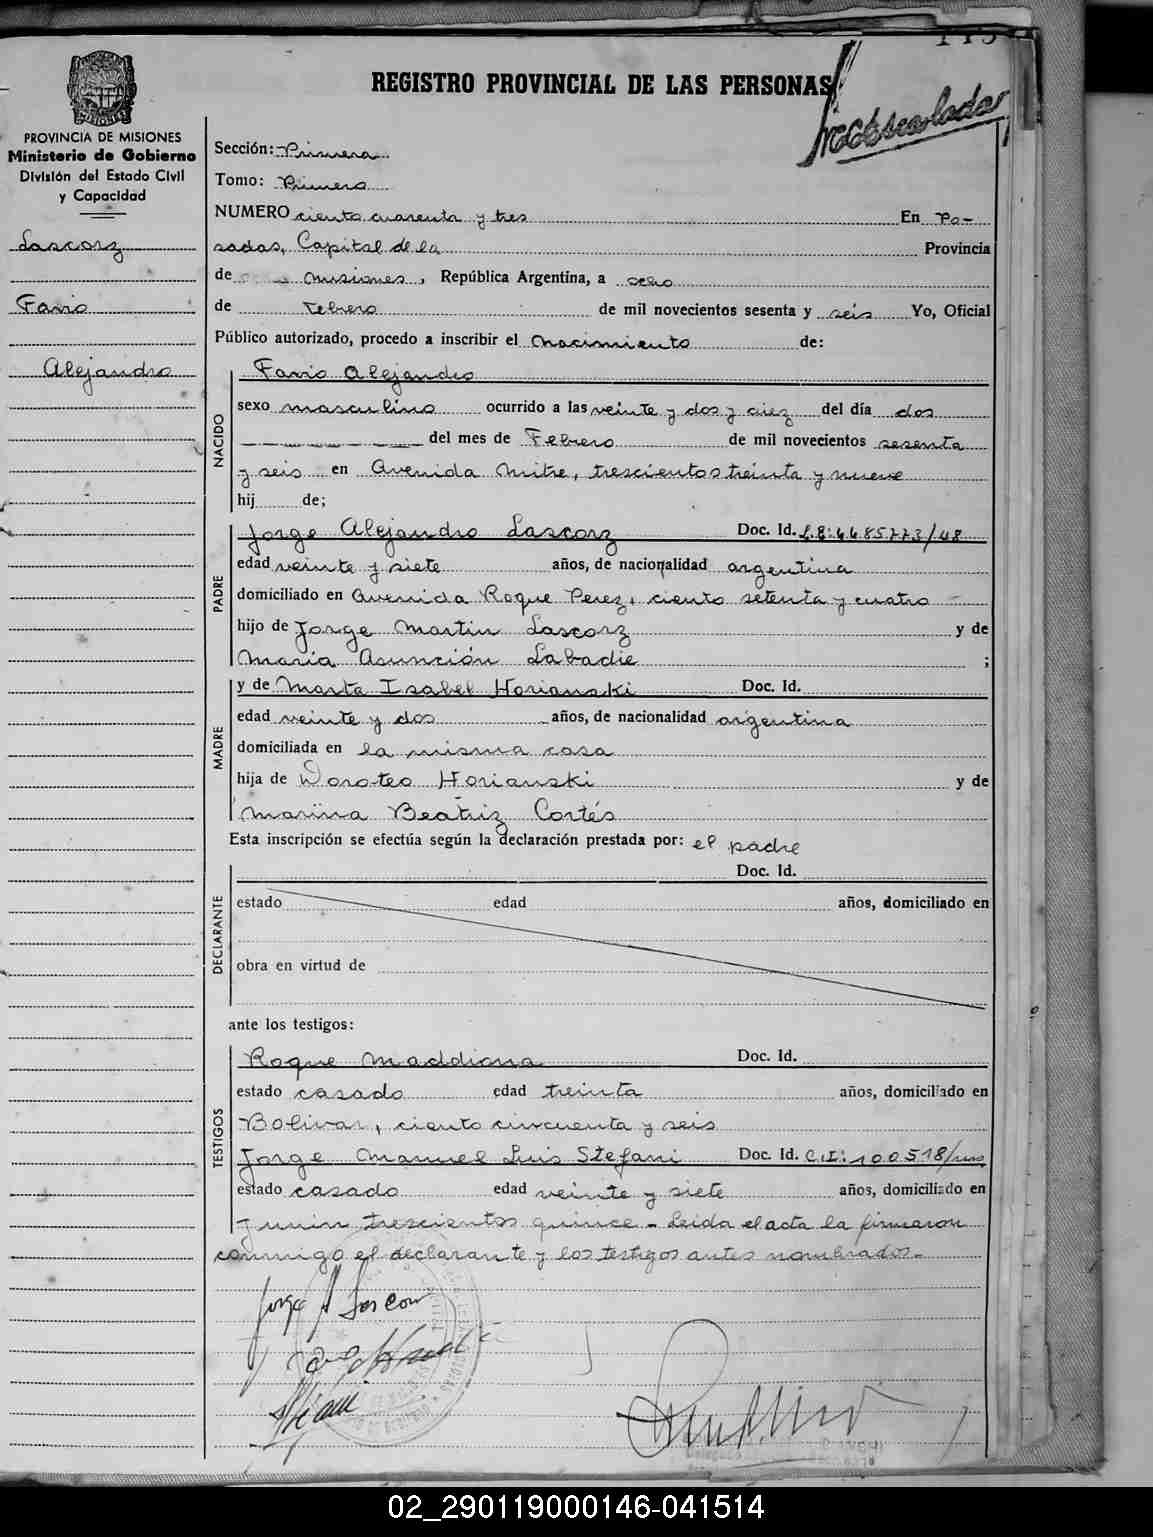 REGISTRO PROVINCIAL DE LAS PERSONAS
PROVINCIA DE MISIONES
Ministerio de Gobierno
División del Estado Civil
y Capacidad
Lascorz
Favio
Alejandro
Sección: Primera
Tomo: Primero
NUMERO ciento cuarenta y tres En Po-
sadas, Capital de la Provincia
de Misiones, República Argentina, a ocho
de Febrero de mil novecientos sesenta y seis Yo, Oficial
Público autorizado, procedo a inscribir el Nacimiento de:
NACIDO
Favio Alejandro
sexo masculino ocurrido a las veinte y dos y diez del día dos
del mes de Febrero de mil novecientos sesenta
y seis en Avenida Mitre, trescientos treinta y nueve
hij de;
PADRE
Jorge Alejandro Lascorz Doc. Id. L.E: 4485773/48
edad veinte y siete años, de nacionalidad argentina
domiciliado en Avenida Roque Perez, ciento setenta y cuatro
hijo de Jorge Martin Lascorz y de
María Asunción Labadie ;
MADRE
y de Marta Isabel Horianski Doc. Id.
edad veinte y dos años, de nacionalidad argentina
domiciliada en la misma casa
hija de Doroteo Horianski y de
Marina Beatriz Cortés
Esta inscripción se efectúa según la declaración prestada por: el padre
DECLARANTE
Doc. Id.
estado edad años, domiciliado en
obra en virtud de
ante los testigos:
TESTIGOS
Roque Maddiona Doc. Id.
estado casado edad treinta años, domiciliado en
Bolivar, ciento cincuenta y seis
Jorge Manuel Luis Stefani Doc. Id. C.I: 100518/
estado casado edad veinte y siete años, domiciliado en
Junin trescientos quince - Leida el acta la firmaron
conmigo el declarante y los testigos antes nombrados.-
02_290119000146-041514